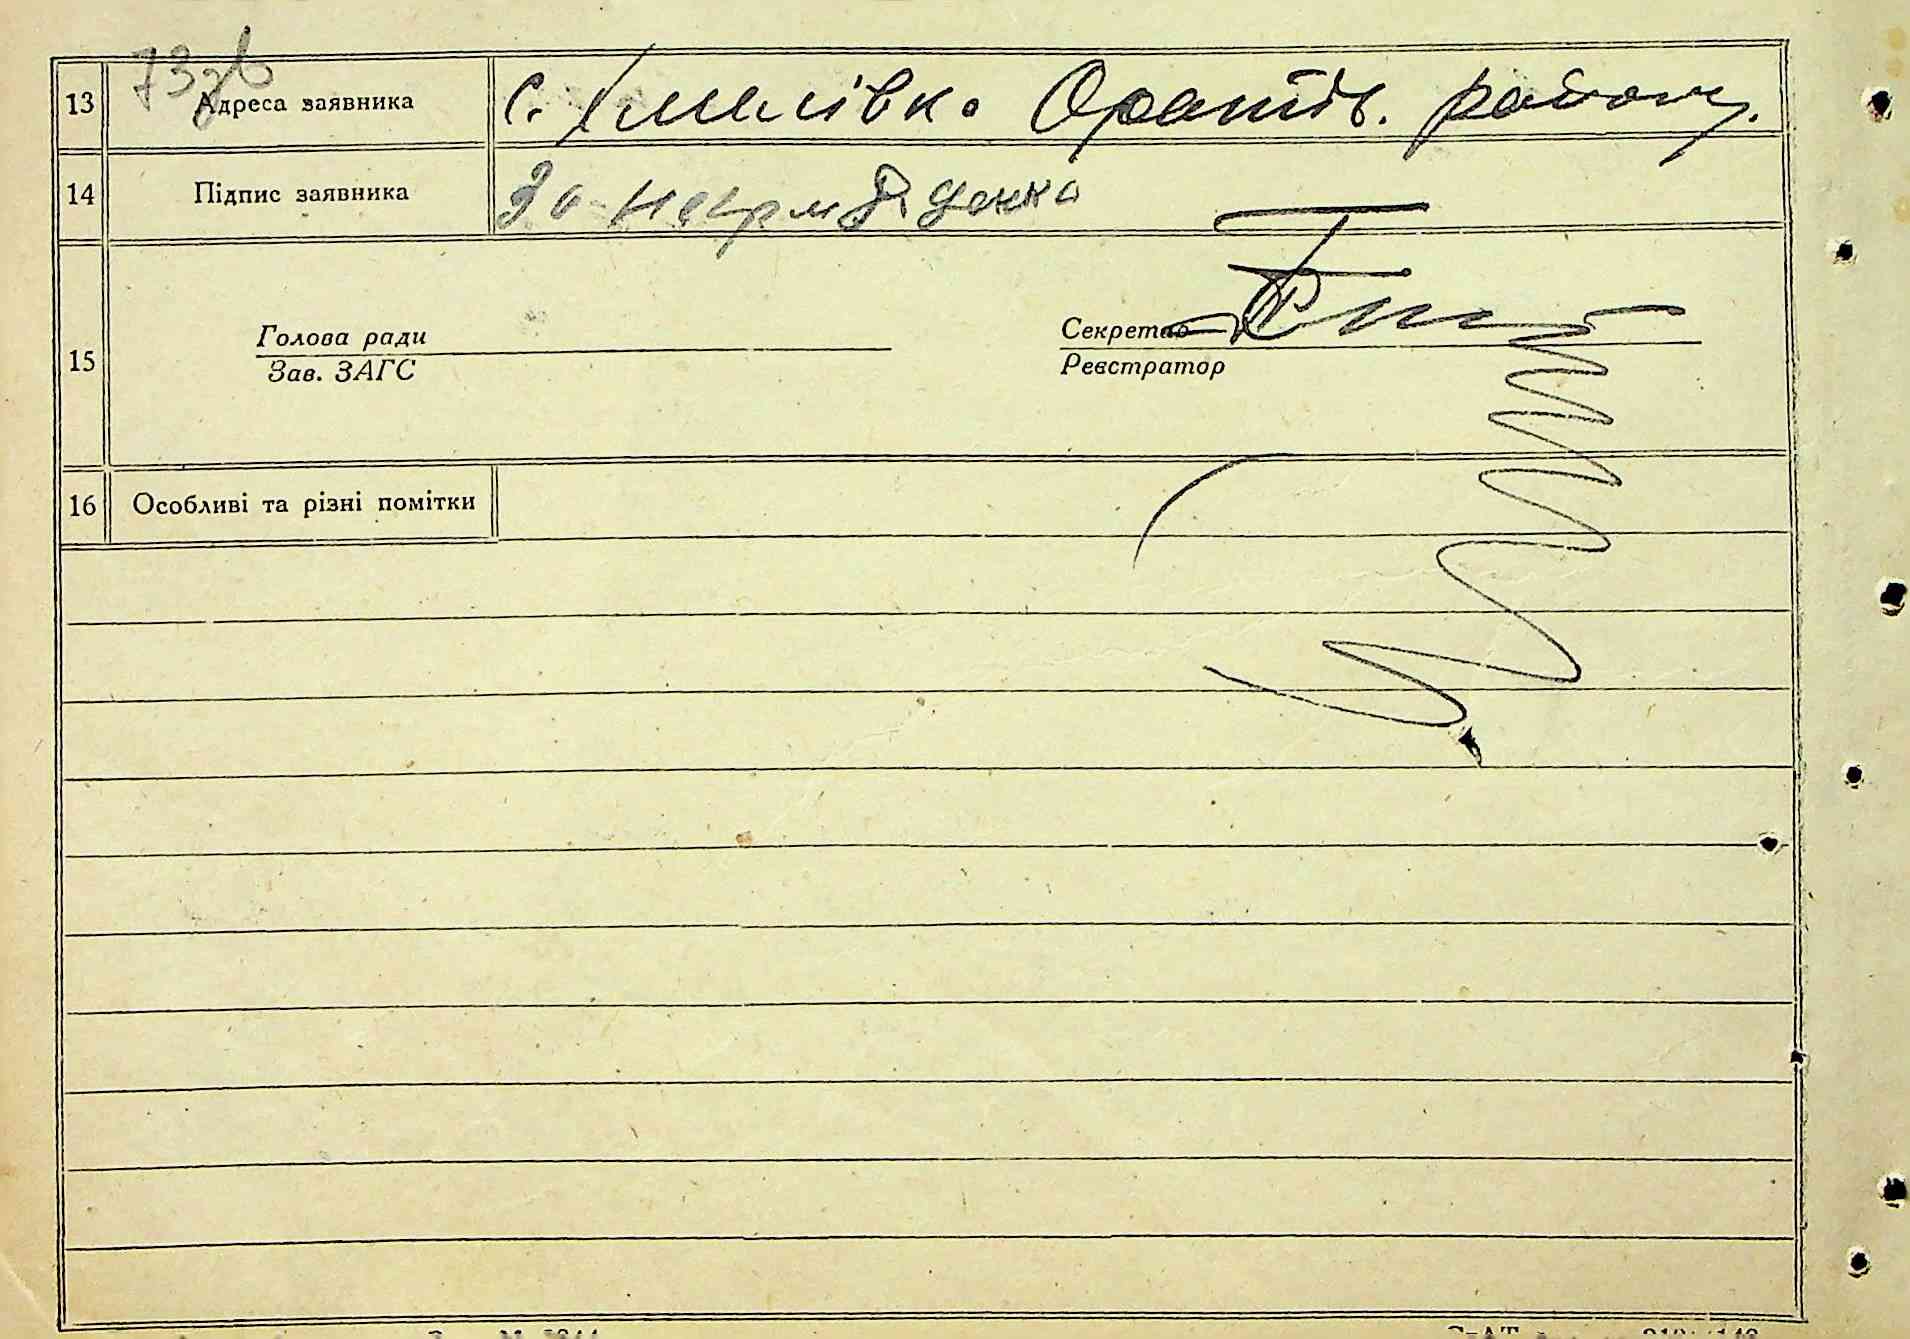 73зв
13 Адреса заявника с. Хмилівк. Оратів. району.
14 Підпис заявника За негр
Голова ради Секретар
15
Зав. ЗАГС Реєстратор
16 Особливі та різні помітки